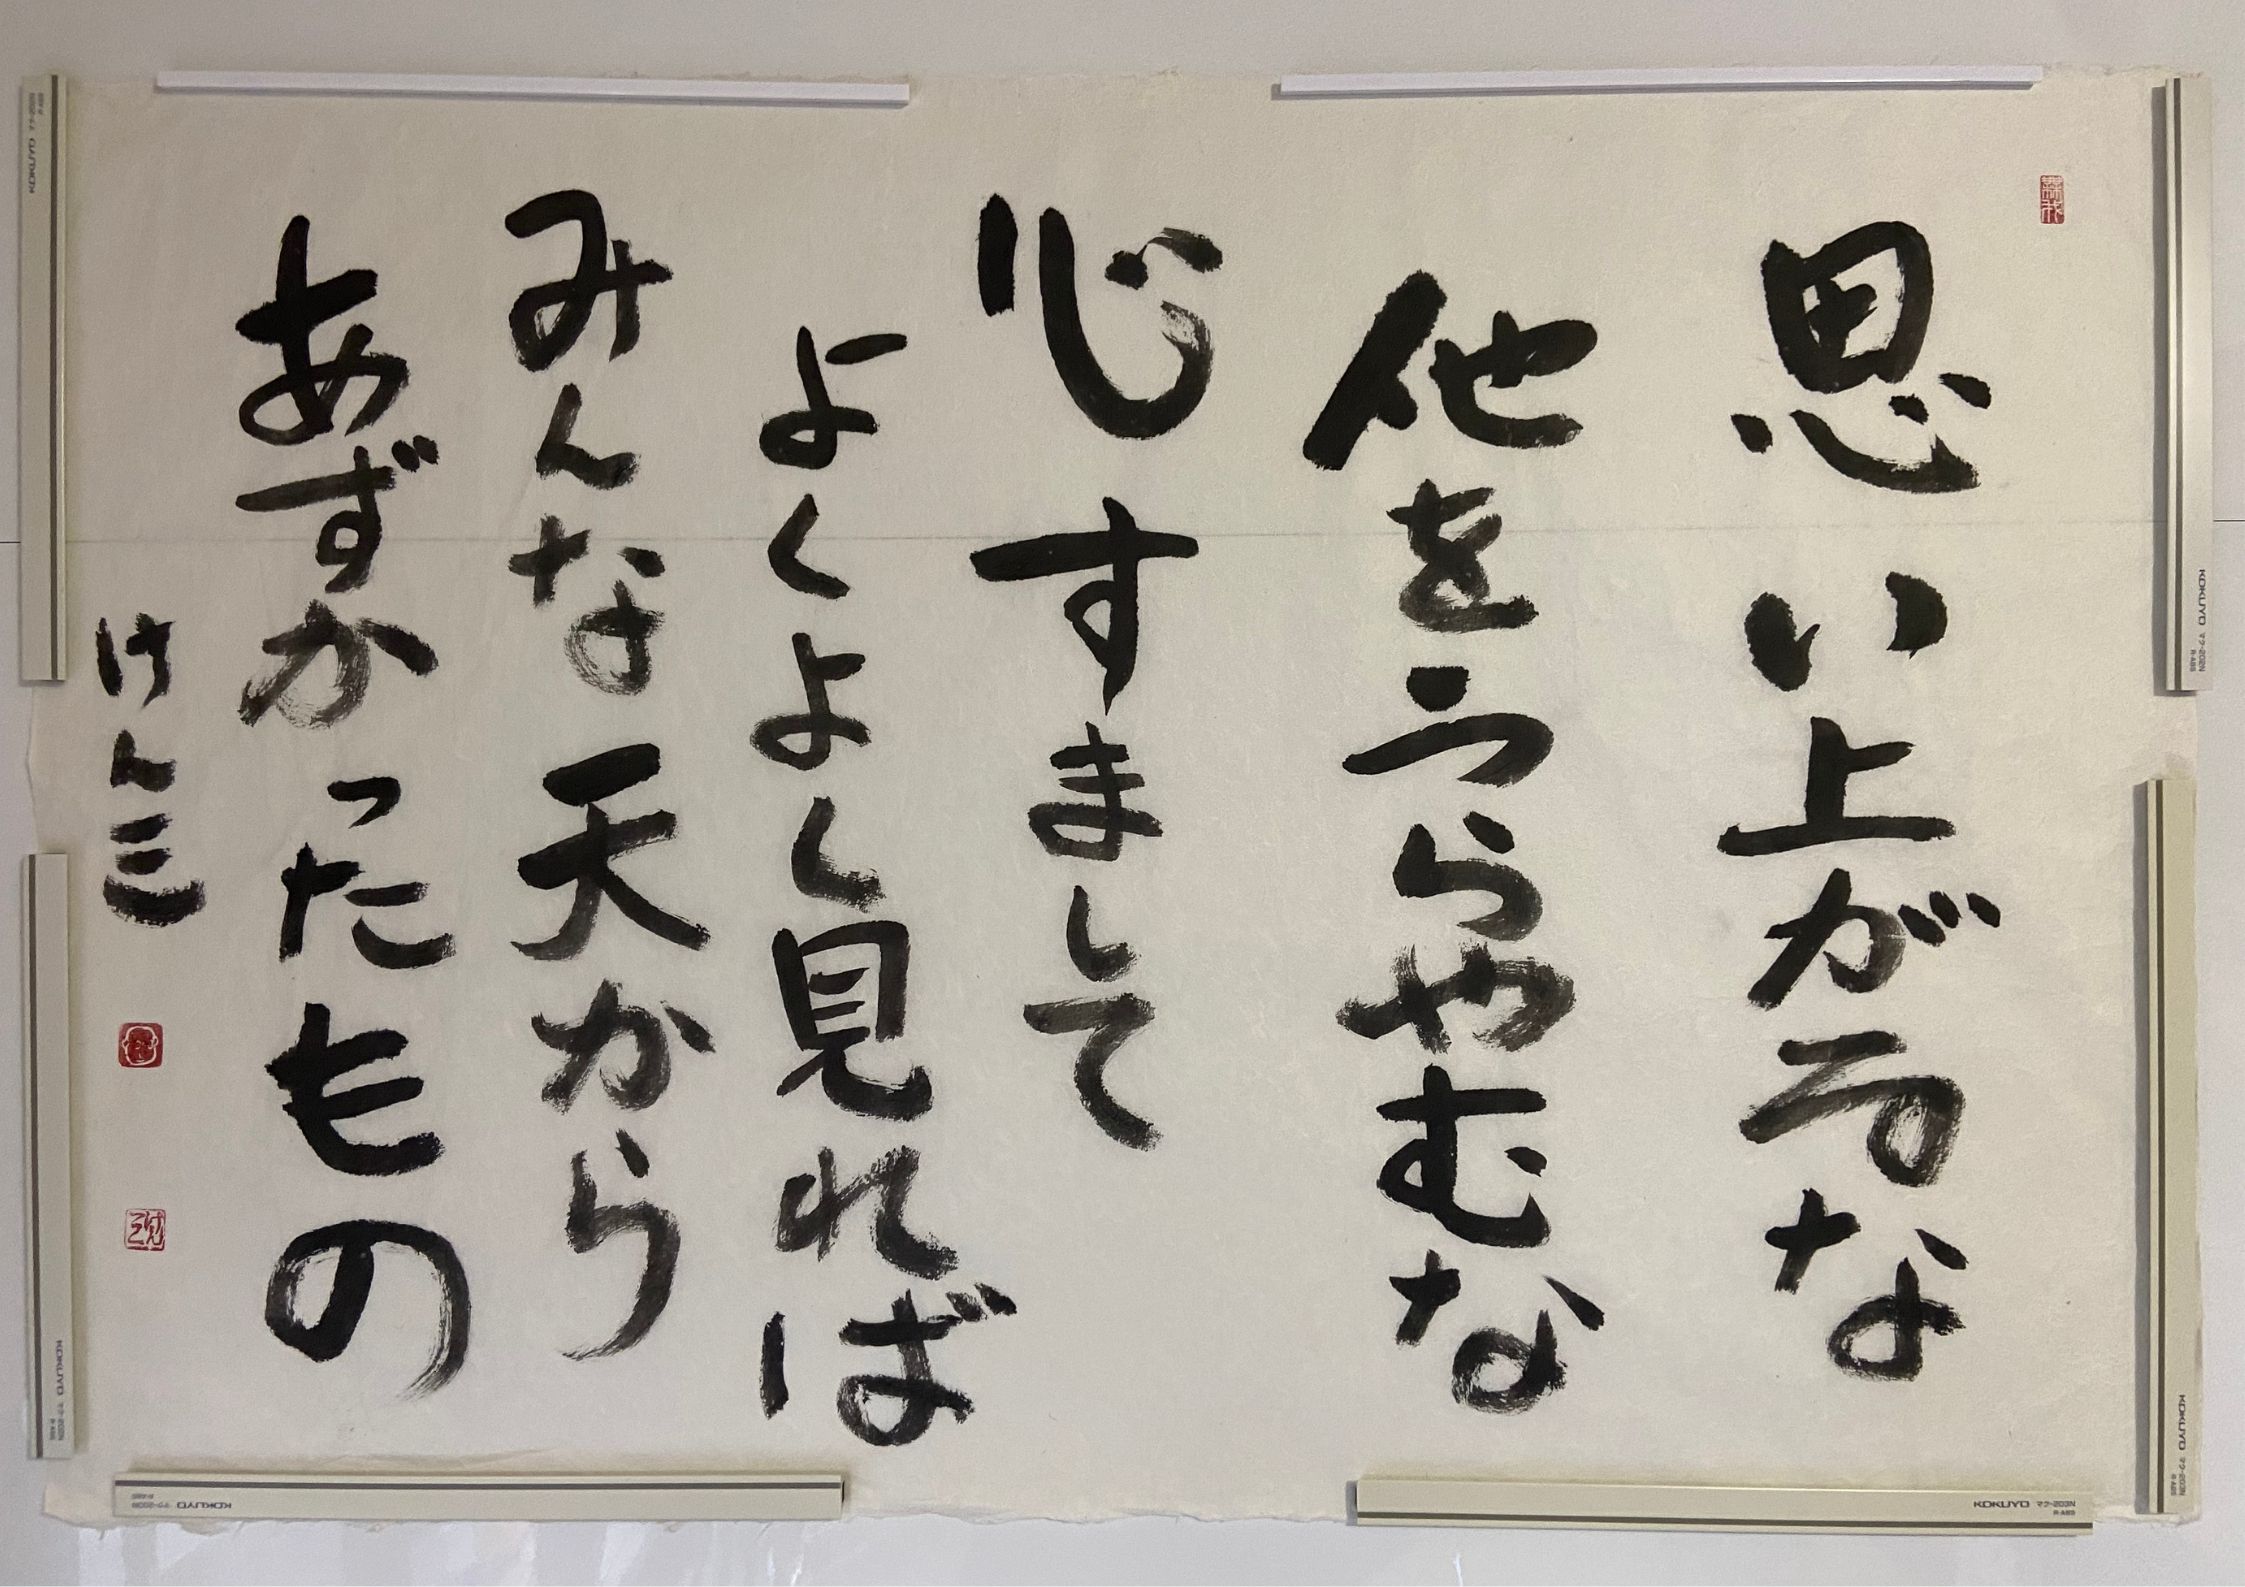 思い上がるな
他をうらやむな
心すまして
よくよく見れば
みんな天から
あずかったもの
けん三
KOKUYO マク-202N
KOKUYO マク-203N
KOKUYO マク-203N
KOKUYO